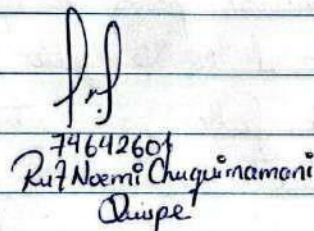 74642601
Rut Noemi Chuquimamani
Quispe